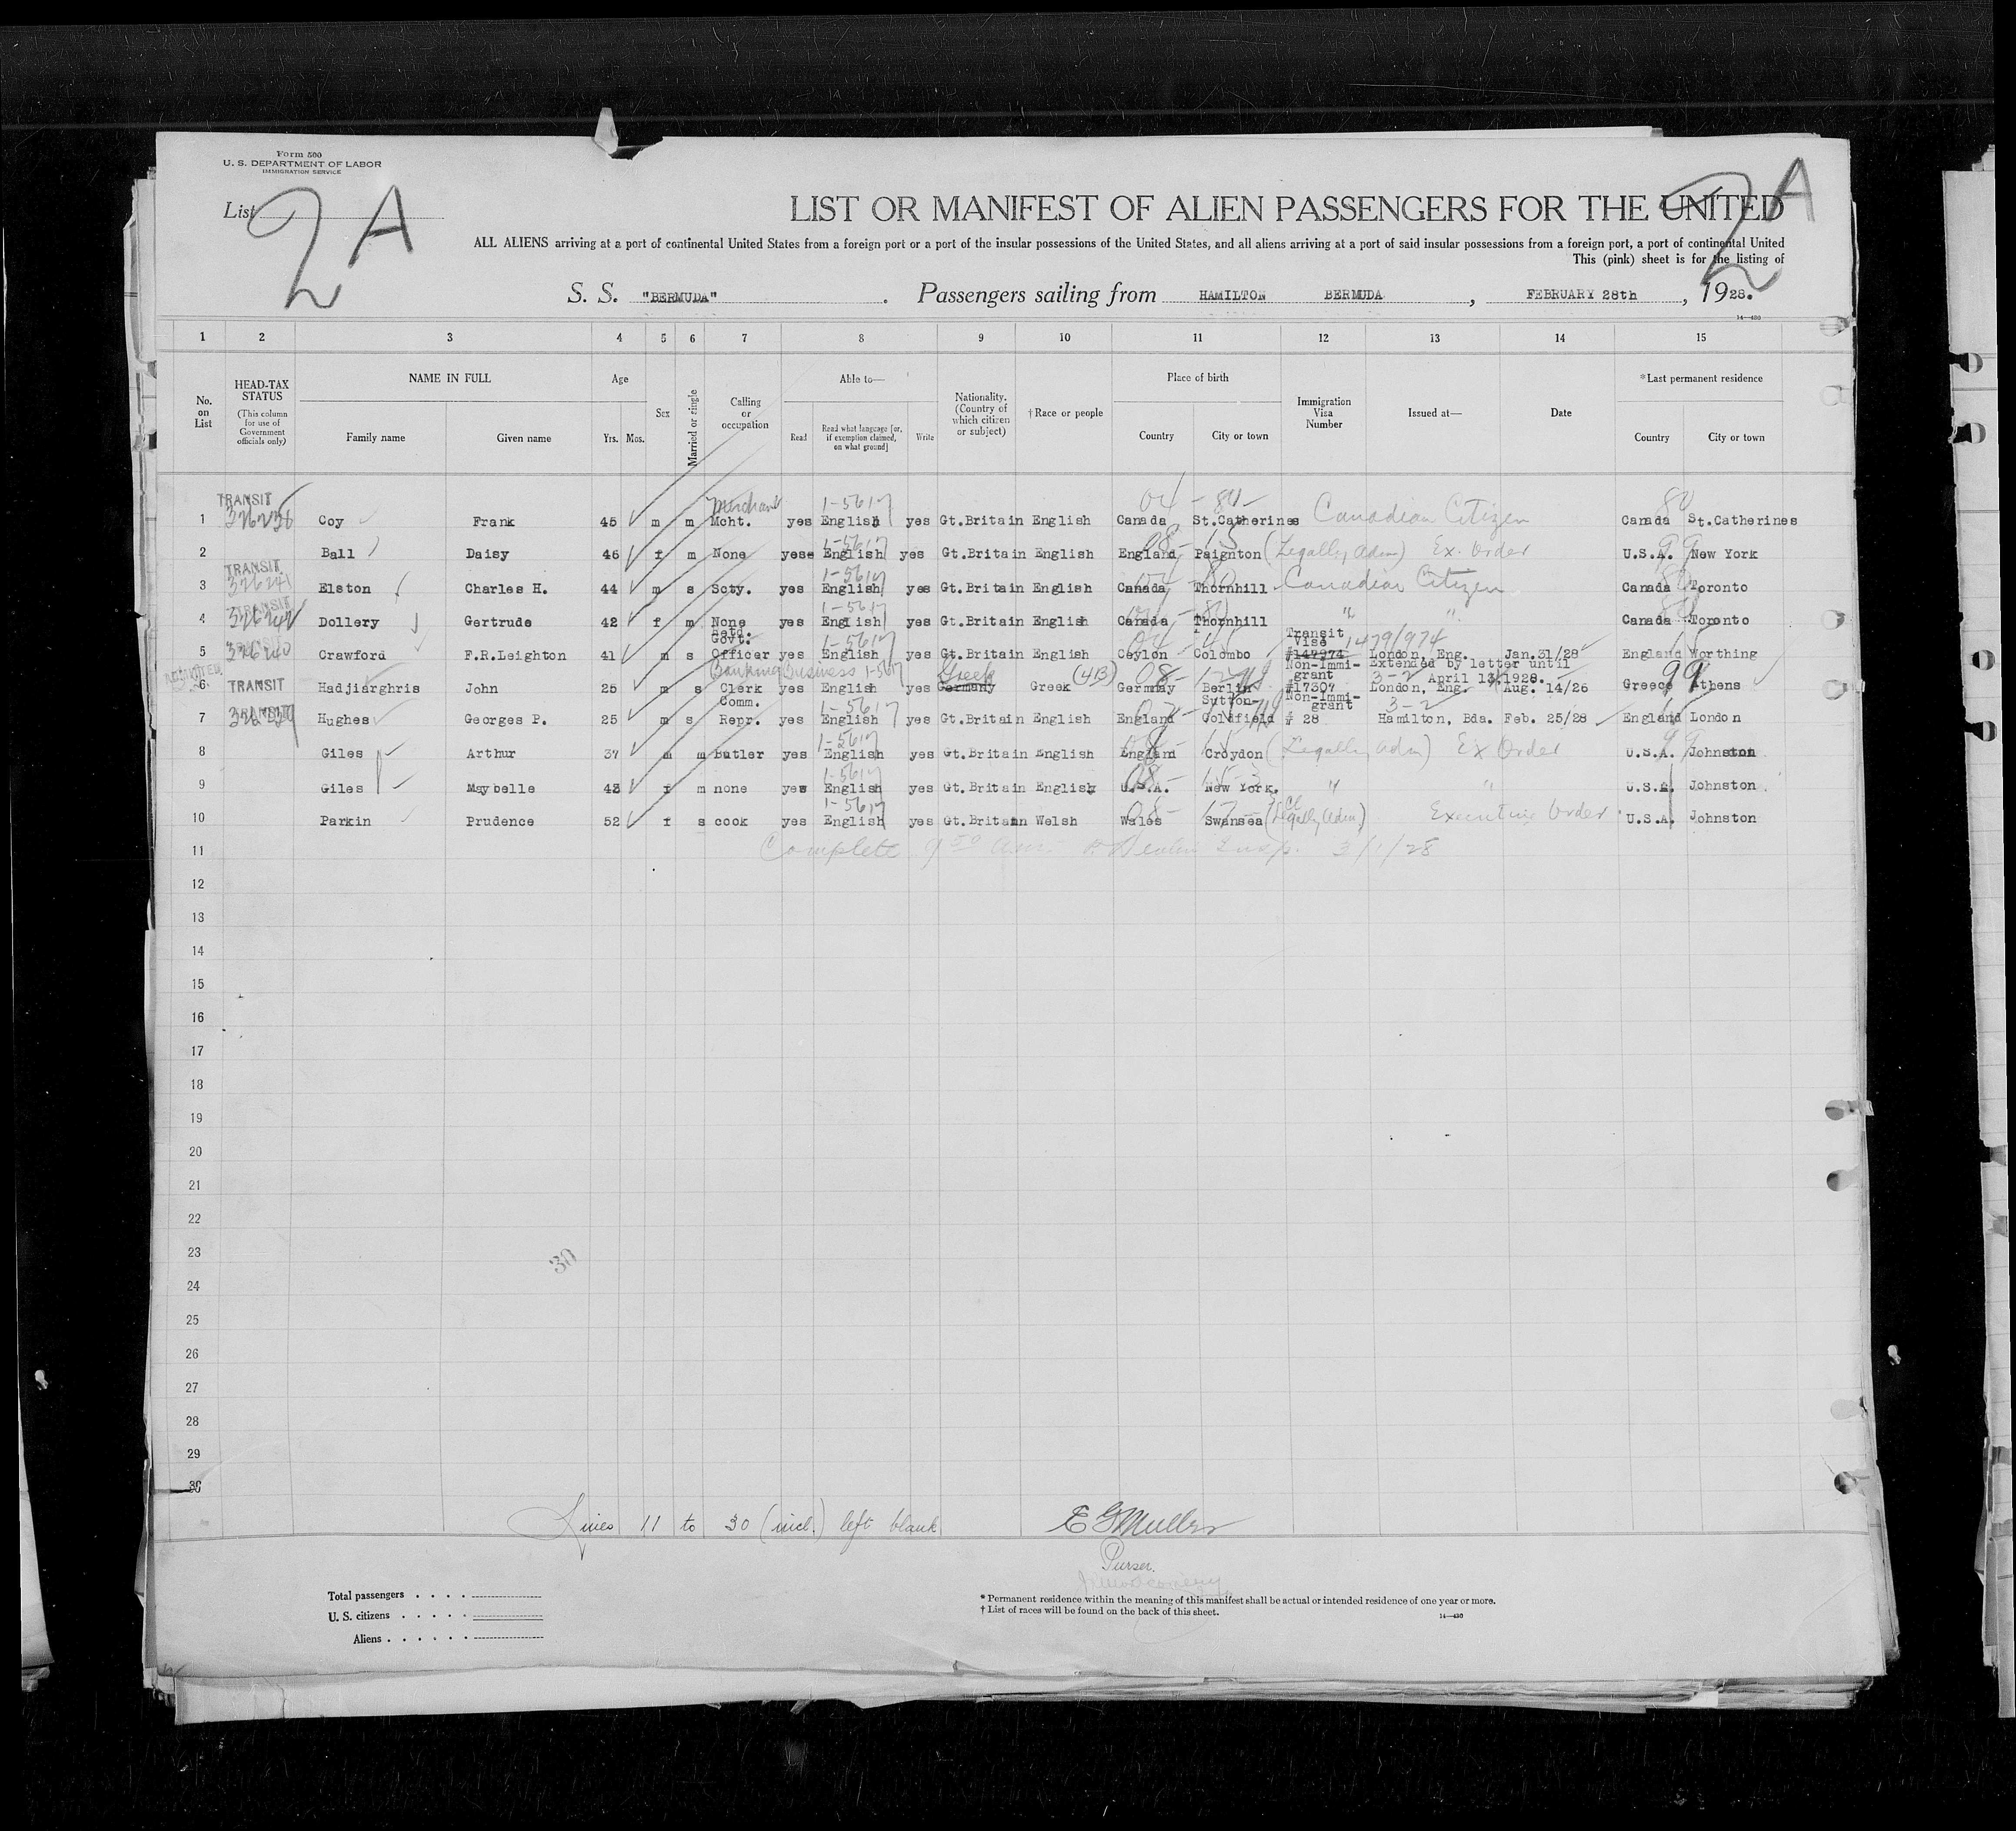 Form 500
U. S. DEPARTMENT OF LABOR
IMMIGRATION SERVICE
List 2 A
2 A
LIST OR MANIFEST OF ALIEN PASSENGERS FOR THE UNITED
ALL ALIENS arriving at a port of continental United States from a foreign port or a port of the insular possessions of the United States, and all aliens arriving at a port of said insular possessions from a foreign port, a port of continental United
This (pink) sheet is for the listing of
S. S. "BERMUDA". Passengers sailing from HAMILTON BERMUDA, FEBRUARY 28th, 1928.
14—430
1 2 3 4 5 6 7 8 9 10 11 12 13 14 15
No. on List
HEAD-TAX STATUS (This column for use of Government officials only)
NAME IN FULL Family name Given name
Age Yrs. Mos.
Sex
Married or single
Calling or occupation
Able to— Read Read what language [or, if exemption claimed, on what ground] Write
Nationality. (Country of which citizen or subject)
†Race or people
Place of birth Country City or town
Immigration Visa Number
Issued at—
Date
*Last permanent residence Country City or town
TRANSIT Merchant 1-5617 04 - 80 - 80
1 326236 Coy Frank 45 m m Mcht. yes English yes Gt.Britain English Canada St.Catherines Canadian Citizen Canada St.Catherines
1-5617 08- 15 99
2 Ball Daisy 46 f m None yese English yes Gt.Britain English England Paignton (Legally Adm) Ex. Order U.S.A. New York
TRANSIT 1-5617
3 326241 Elston Charles H. 44 m s Scty. yes English yes Gt.Britain English Canada Thornhill Canadian Citizen Canada Toronto
TRANSIT 1-5617
4 326242 Dollery Gertrude 42 f m None yes English yes Gt.Britain English Canada Thornhill " " Canada Toronto
Retd. Govt. 1-5617 Transit Vise 1479/974
5 326240 Crawford F.R.Leighton 41 m s Officer yes English yes Gt.Britain English Ceylon Colombo #147974 London, Eng. Jan.31/28 England Worthing
Banking Business 1-5617 Greek (4B) 08- Non-Immigrant Extended by letter until April 13,1928. 99
6 TRANSIT Hadjiarghris John 25 m s Clerk yes English yes Germany Greek Germnay Berlin #17307 London, Eng. Aug. 14/26 Greece Athens
TRANSIT Comm. 1-5617 Sutton- Non-Immigrant 3-2
7 Hughes Georges P. 25 m s Repr. yes English yes Gt.Britain English England Coldfield # 28 Hamilton, Bda. Feb. 25/28 England London
1-5617
8 Giles Arthur 37 m m Butler yes English yes Gt.Britain English England Croydon (Legally Adm) Ex Order U.S.A. Johnston
1-5617
9 Giles Maybelle 42 f m none yes English yes Gt.Britain English U.S.A. New York. " " U.S.A. Johnston
1-5617
10 Parkin Prudence 52 f s cook yes English yes Gt.Britain Welsh Wales Swansea (Legally Adm) Executive Order U.S.A. Johnston
11 Complete 9 50 Insp. 3/1/28
12
13
14
15
16
17
18
19
20
21
22
23
30
24
25
26
27
28
29
30
Lines 11 to 30 (incl.) left blank E G Muller
Purser.
Total passengers
U. S. citizens
Aliens
* Permanent residence within the meaning of this manifest shall be actual or intended residence of one year or more.
† List of races will be found on the back of this sheet.
14—430